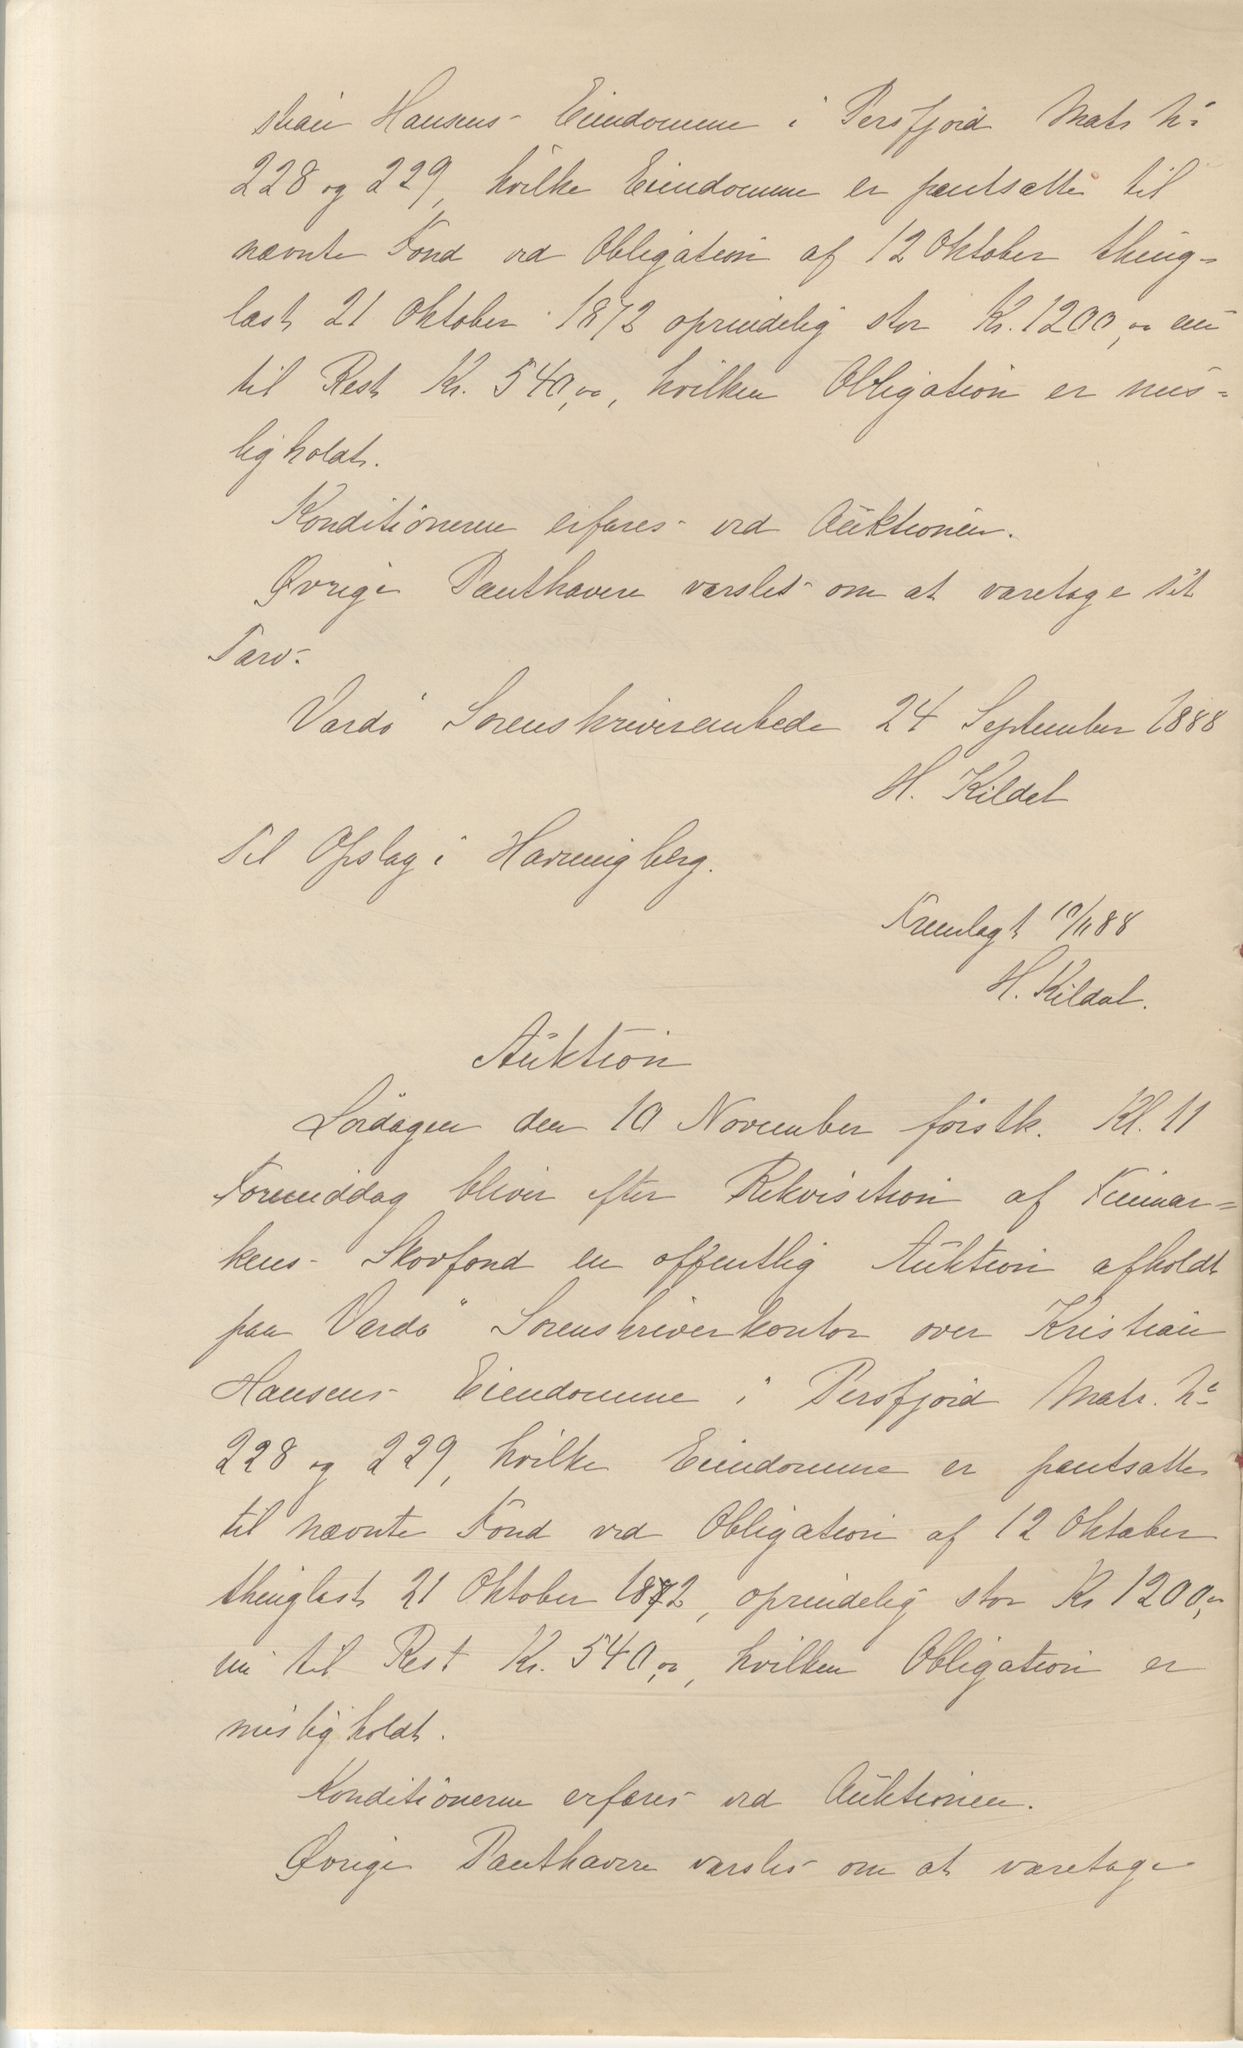 stian Hansens Eiendomme i Persfjord Matr. No
228 og 229, hvilke Eiendomme er pantsatte til
nævnte Fond ved Obligation af 12 Oktober thing-
læst 21 Oktober 1872 oprindelig stor Kr. 1200,00 nu
til Rest Kr. 540,00, hvilken Obligation er mis-
ligholdt.
Konditionerne erfares ved Auktionen.
Øvrige Panthavere varsles om at varetage sit
Tarv.
Vardö Sorenskriverembede 24 September 1888
H. Kildal
Til Opslag i Havningberg.
Fremlagt 10/11 88
H. Kildal.
Auktion
Lördagen den 10 November förstk. Kl. 11
Formiddag bliver efter Rekvisition af Finmar-
kens Skovfond en offentlig Auktion afholdt
paa Vardö Sorenskriverkontor over Kristian
Hansens Eiendomme i Persfjord Matr. No
228 og 229, hvilke Eiendomme er pantsatte
til nævnte Fond ved Obligation af 12 Oktober
thinglæst 21 Oktober 1872, oprindelig stor Kr 1200,00
nu til Rest Kr. 540,00, hvilken Obligation er
misligholdt.
Konditionerne erfares ved Auktionen.
Øvrige Panthavere varsles om at varetage